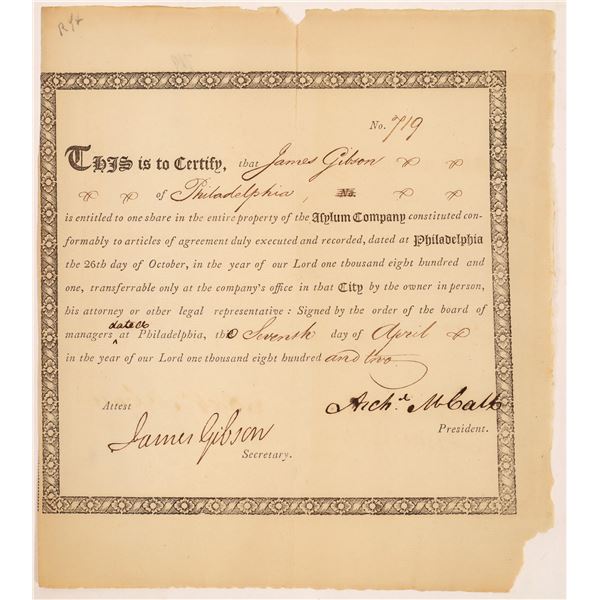 No. 719
THIS is to Certify, that James Gibson
of Philadelphia, No.
is entitled to one share in the entire property of the Asylum Company constituted con-
formably to articles of agreement duly executed and recorded, dated at Philadelphia
the 26th day of October, in the year of our Lord one thousand eight hundred and
one, transferrable only at the company's office in that City by the owner in person,
his attorney or other legal representative: Signed by the order of the board of
dated
managers at Philadelphia, the Seventh day of April
in the year of our Lord one thousand eight hundred and two
Attest
Archd. McCall
President.
James Gibson
Secretary.